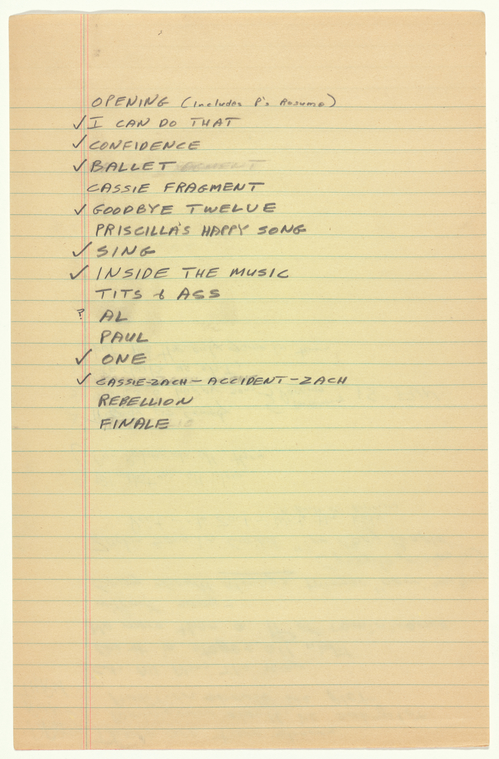 OPENING (Includes P's Resume)
✓ I CAN DO THAT
✓ CONFIDENCE
✓ BALLET
CASSIE FRAGMENT
✓ GOODBYE TWELVE
PRISCILLA'S HAPPY SONG
✓ SING
✓ INSIDE THE MUSIC
TITS & ASS
? AL
PAUL
✓ ONE
✓ CASSIE-ZACH - ACCIDENT - ZACH
REBELLION
FINALE